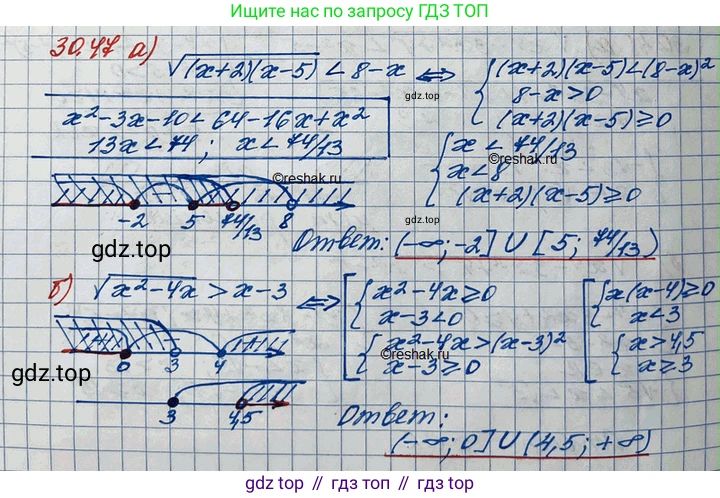 Ищите нас по запросу ГДЗ ТОП
30.47 а) √(x+2)(x-5) < 8-x ⇔ { (x+2)(x-5)<(8-x)²
8-x>0
(x+2)(x-5)≥0
gdz.top
x²-3x-10<64-16x+x²
13x<74; x<74/13
{ x < 74/13
x<8
(x+2)(x-5)≥0
©reshak.ru
©reshak.ru
gdz.top
-2 5 74/13 8
Ответ: (-∞; -2] ∪ [5; 74/13)
gdz.top
б) √x²-4x > x-3 ⇔ [ { x²-4x≥0
x-3<0
{ x²-4x>(x-3)²
x-3≥0
[ { x(x-4)≥0
x<3
{ x>4,5
x≥3
©reshak.ru
0 3 4
gdz.top
3 4,5
Ответ:
(-∞; 0] ∪ (4,5; +∞)
gdz.top // гдз.топ // gdz.top